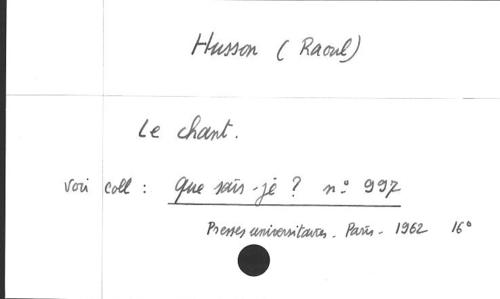 Husson (Raoul)
Le chant.
Voir coll : Que sais-je ? n° 997
Presses universitaires. Paris - 1962 16°